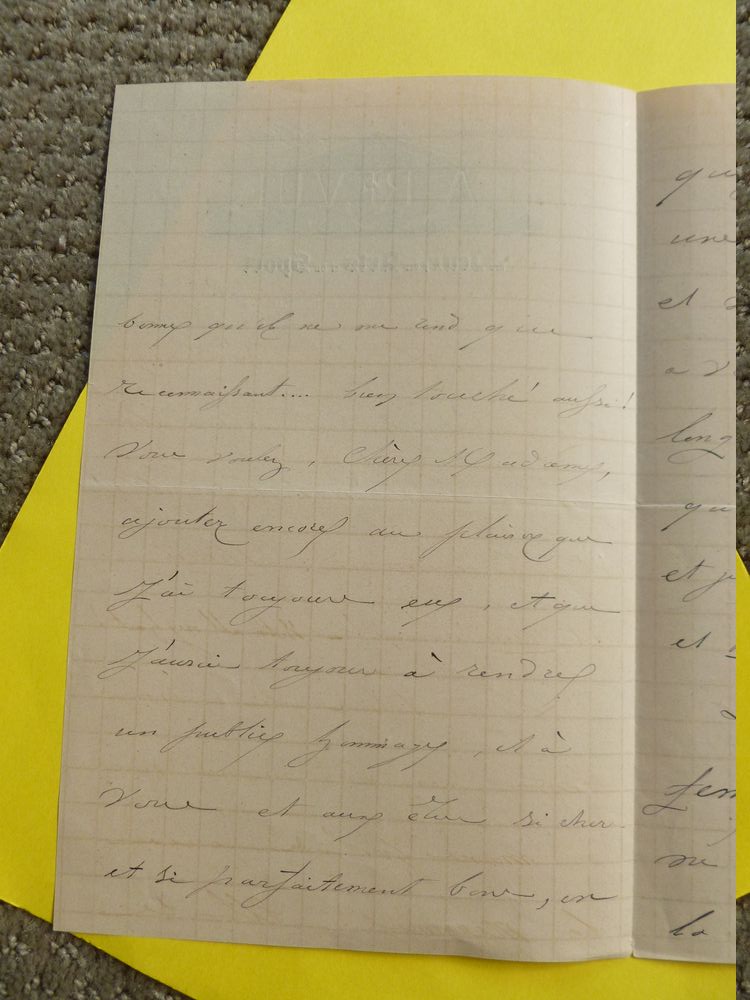 qu'il ne me rend que
reconnaissant.... bien touché aussi!
Vous voulez, chère Madame,
ajouter encore au plaisir que
j'ai toujours eu, et que
j'aurai toujours à rendre
un public hommage, et à
Vous et aux êtres si chers
et si parfaitement bons, en
une
et
long
et
et
la